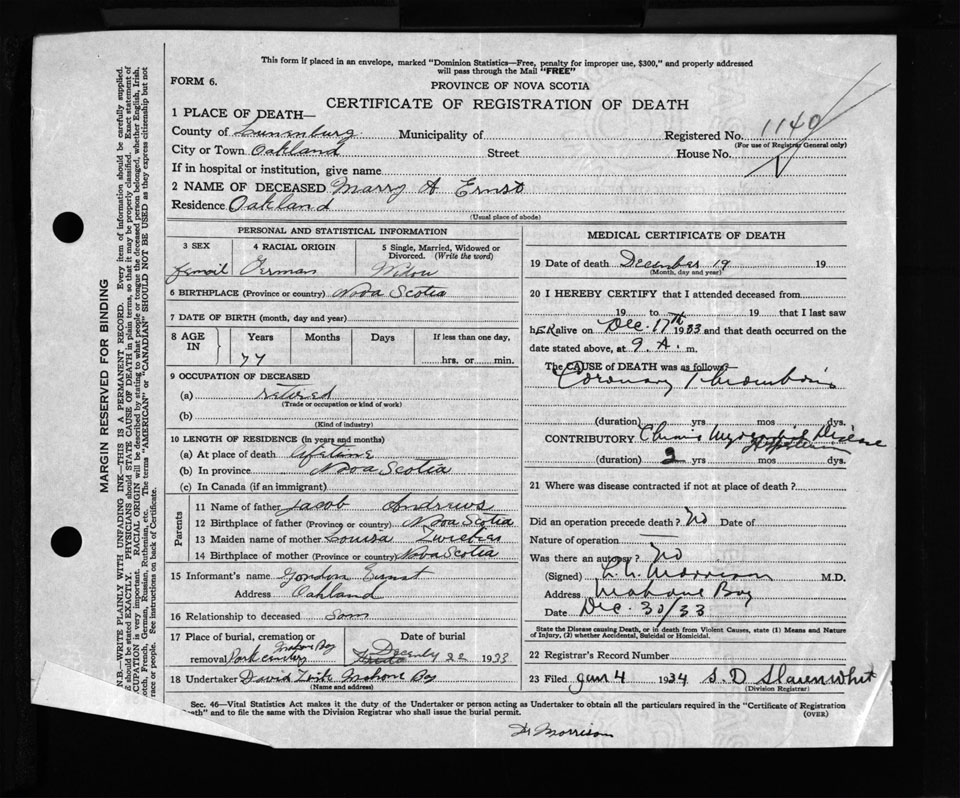 This form if placed in an envelope, marked "Dominion Statistics—Free, penalty for improper use, $300," and properly addressed
will pass through the Mail "FREE"
FORM 6.
PROVINCE OF NOVA SCOTIA
CERTIFICATE OF REGISTRATION OF DEATH
1 PLACE OF DEATH—
County of Lunenburg Municipality of
Registered No. 1140
(For use of Registrar General only)
City or Town Oakland Street House No.
If in hospital or institution, give name
2 NAME OF DECEASED Marry A Ernst
Residence Oakland
(Usual place of abode)
PERSONAL AND STATISTICAL INFORMATION
3 SEX
4 RACIAL ORIGIN
5 Single, Married, Widowed or
Divorced. (Write the word)
German
6 BIRTHPLACE (Province or country) Nova Scotia
7 DATE OF BIRTH (month, day and year)
8 AGE
IN
Years
Months
Days
If less than one day,
77
hrs. or min.
9 OCCUPATION OF DECEASED
(a) retired
(Trade or occupation or kind of work)
(b)
(Kind of industry)
10 LENGTH OF RESIDENCE (in years and months)
(a) At place of death lifetime
(b) In province Nova Scotia
(c) In Canada (if an immigrant)
Parents
11 Name of father Jacob Andrews
12 Birthplace of father (Province or country) Nova Scotia
13 Maiden name of mother Louisa
14 Birthplace of mother (Province or country) Nova Scotia
15 Informant's name Gordon Ernst
Address Oakland
16 Relationship to deceased Son
17 Place of burial, cremation or
removal Park Mahone Bay
Date of burial
22 1933
18 Undertaker David Mahone Bay
(Name and address)
MEDICAL CERTIFICATE OF DEATH
19 Date of death December 19 19
(Month, day and year)
20 I HEREBY CERTIFY that I attended deceased from
19 to 19 that I last saw
hER alive on Dec. 17th 1933 and that death occurred on
date stated above, at 9 A. m.
The CAUSE of DEATH was as follows:
Coronary Thrombosis
(duration) yrs mos dys.
CONTRIBUTORY Chronic Myocardial Disease
(duration) 2 yrs mos dys.
21 Where was disease contracted if not at place of death?
Did an operation precede death? No Date of
Nature of operation —
Was there an autopsy? No
(Signed) Morrison M.D.
Address Mahone Bay
Date Dec. 30/33
State the Disease causing Death, or in death from Violent Causes, state (1) Means and Nature
of Injury, (2) whether Accidental, Suicidal or Homicidal.
22 Registrar's Record Number
23 Filed Jan 4 1934 S. D
(Division Registrar)
Sec. 46—Vital Statistics Act makes it the duty of the Undertaker or person acting as Undertaker to obtain all the particulars required in the "Certificate of Registration
and to file the same with the Division Registrar who shall issue the burial permit.
(OVER)
Dr Morrison
MARGIN RESERVED FOR BINDING
N.B.—WRITE PLAINLY WITH UNFADING INK—THIS IS A PERMANENT RECORD. Every item of information should be carefully supplied.
should be stated EXACTLY. PHYSICIANS should STATE CAUSE OF DEATH in plain terms, so that it may be properly classified. Exact statement of
CUPATION is very important. RACIAL ORIGIN will be described by stating to what people or tongue the deceased person belonged, whether English, Irish,
otch, French, German, Russian, Ruthenian, etc. The terms "AMERICAN" or "CANADIAN" SHOULD NOT BE USED as they express citizenship but not
race or people. See instructions on back of Certificate.